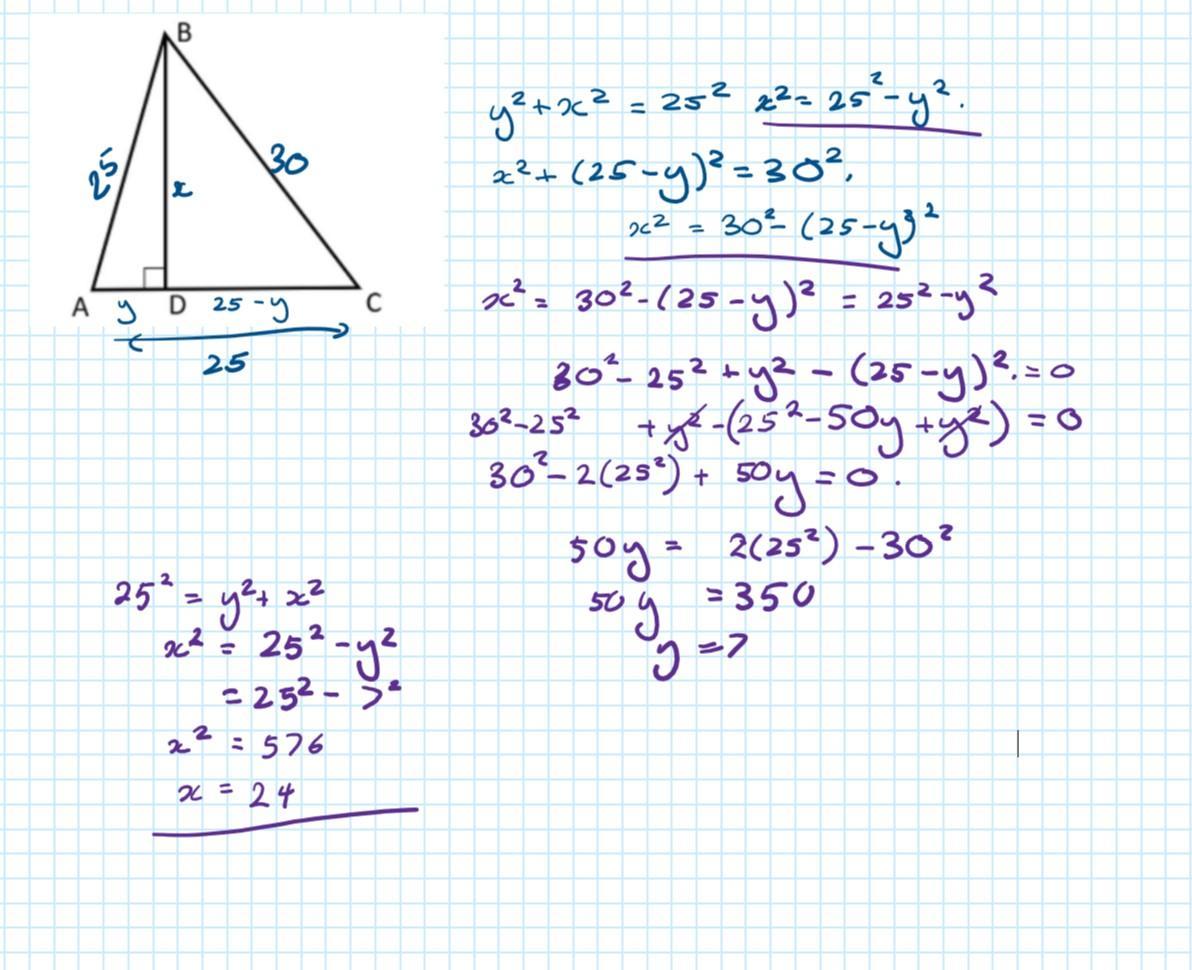 B
25
x
30
A y D 25 - y C
25
y² + x² = 25² x² = 25² - y².
x² + (25 - y)² = 30².
x² = 30² - (25 - y)²
x² = 30² - (25 - y)² = 25² - y²
30² - 25² + y² - (25 - y)². = 0
30² - 25² + y² - (25² - 50y + y²) = 0
30² - 2(25²) + 50y = 0.
50y = 2(25²) - 30²
50y = 350
y = 7
25² = y² + x²
x² = 25² - y²
= 25² - 7²
x² = 576
x = 24